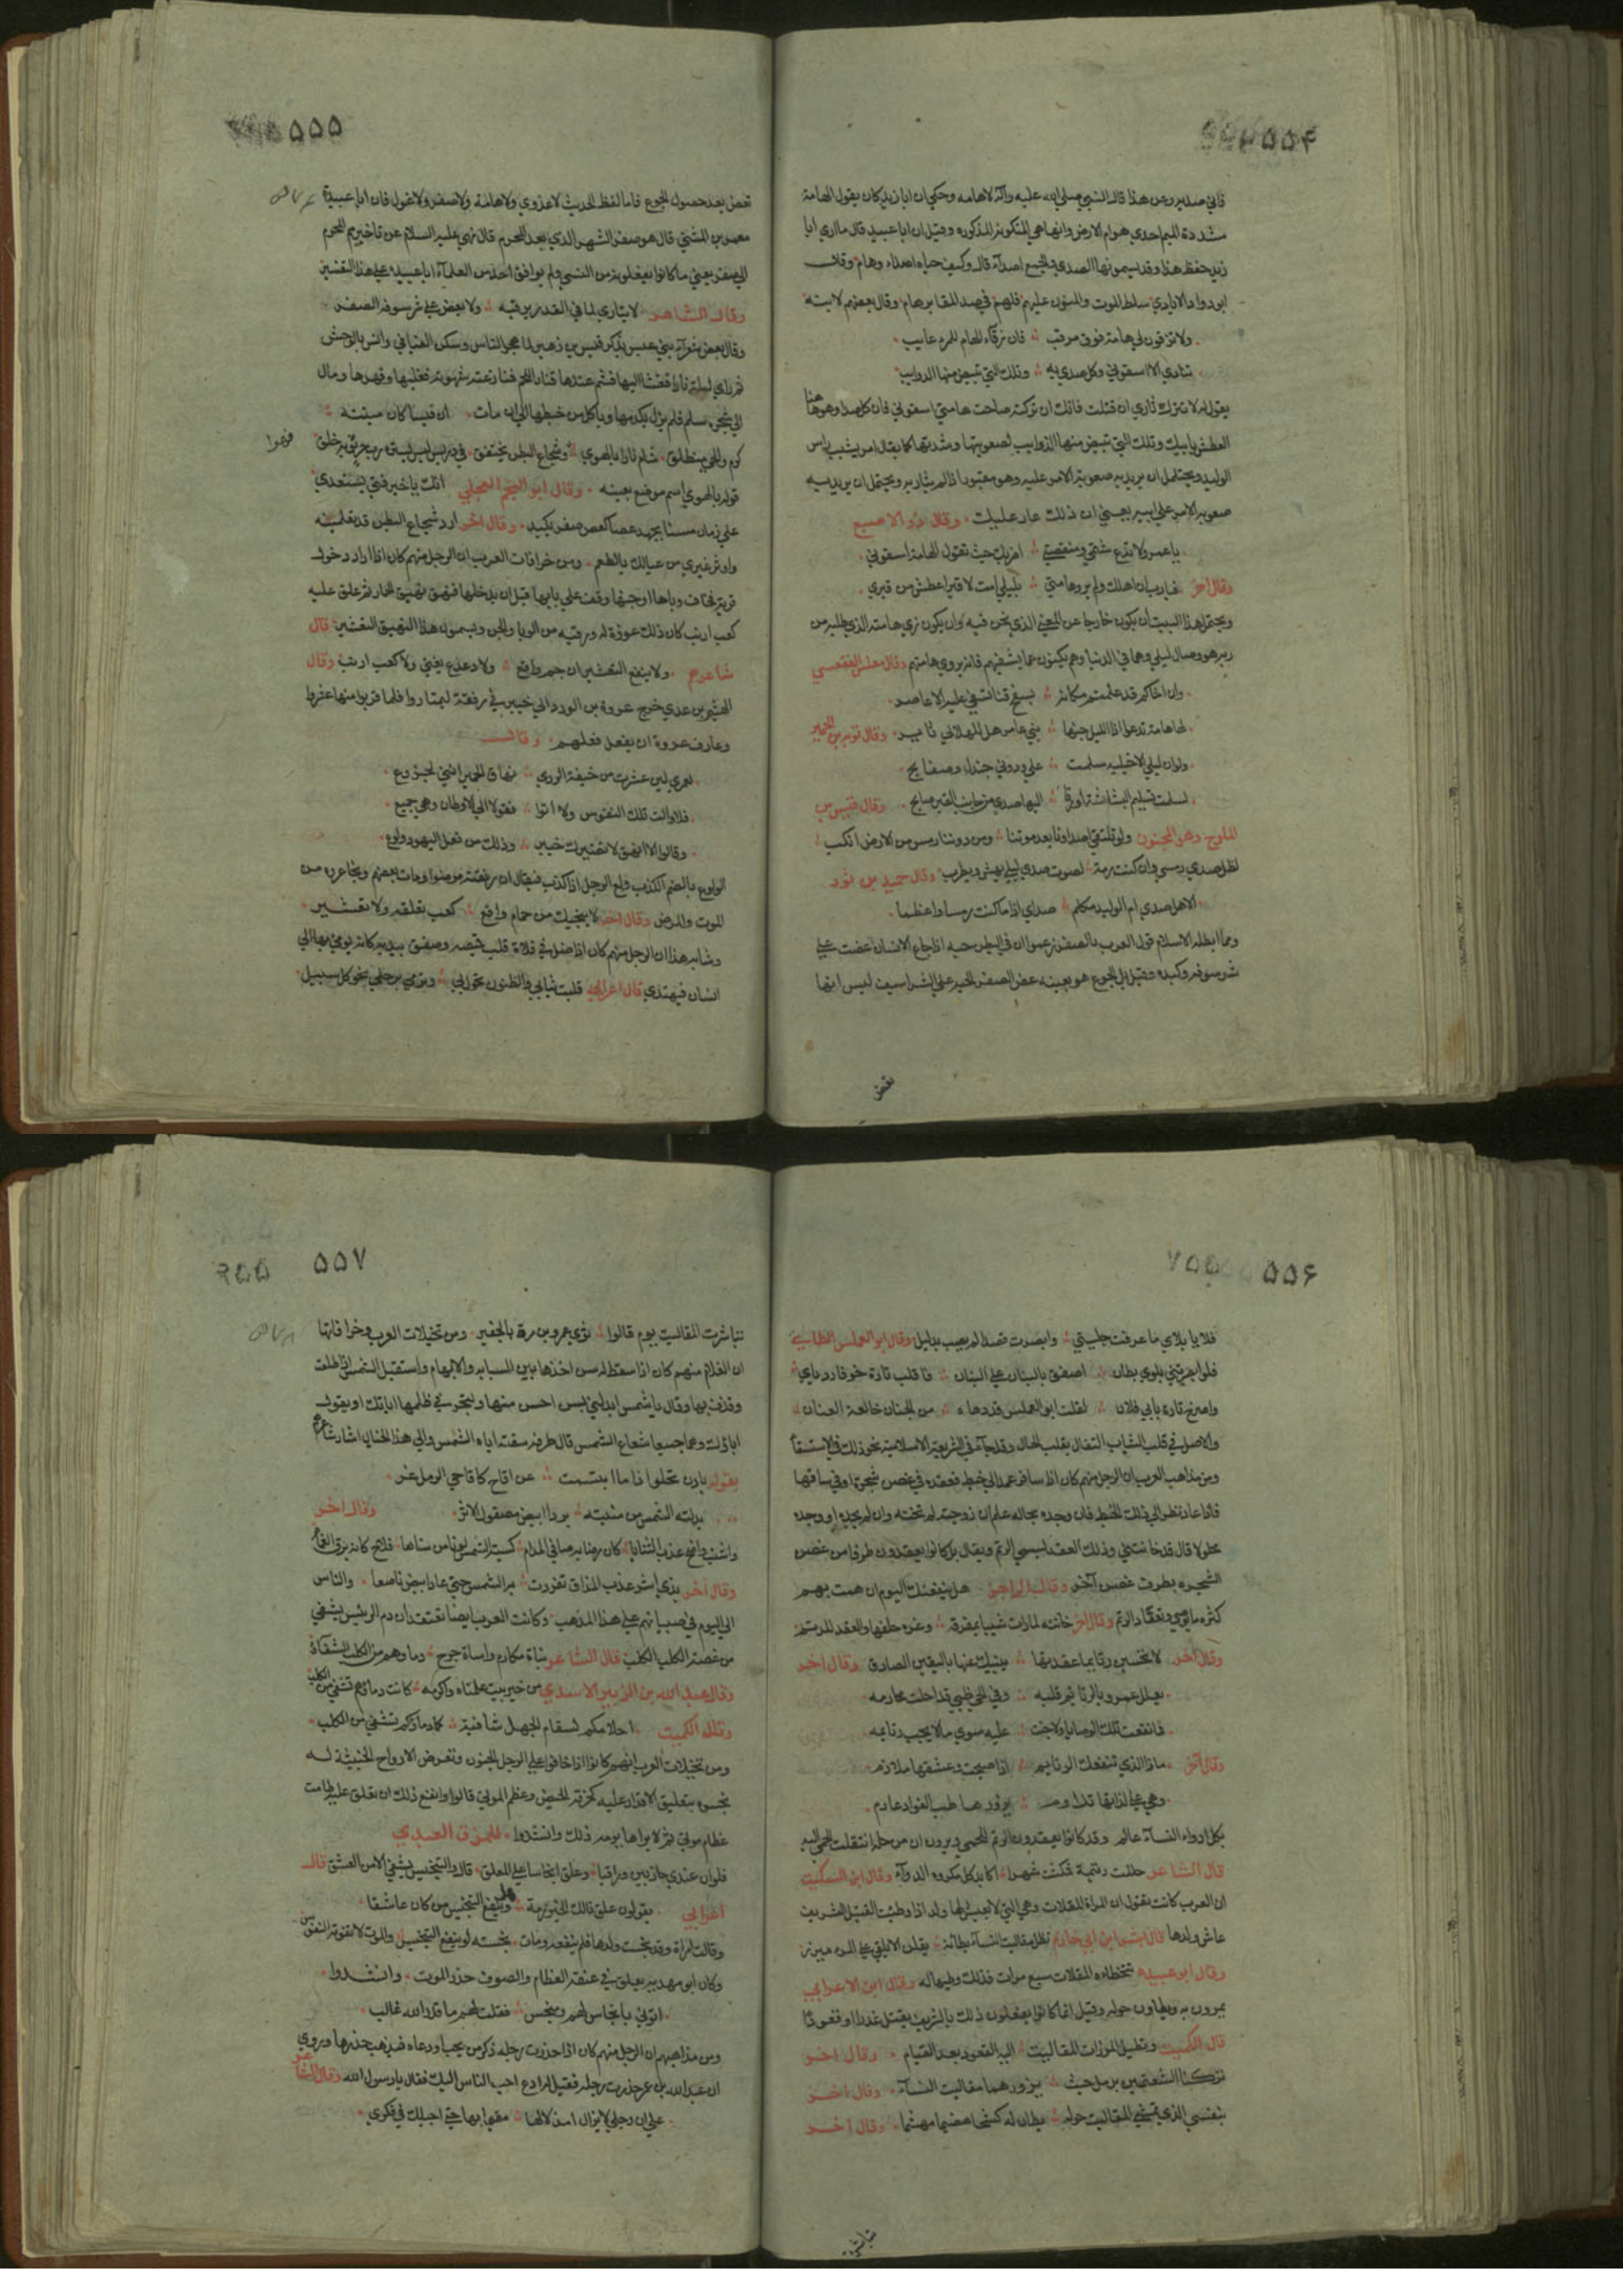 ۵۵۴
فاني صدير ومن هذا قال النبي صلى الله عليه وآله لا هامه وحكي ان ابا زيد كان يقول الهامة
مشددة الميم احدي هوام الارض وانها هي المتكونه المذكوره وقيل ان ابا عبيد قال ما اري ابا
زيد حفظ هذا وقد يسمونها الصدي والجمع اصداء قال وكيف حياه اصداء وهام وقال
ابو دواد الايادي سلط الموت والمنون عليهم فلهم في صدا المقابر هام وقال بعضهم لابنه
ولا تزقون لي هامة فوق مرقب فان زقاء الهام للمرء عايب
تنادي الا اسقوني وكل صدي به وتلك التي تبيض منها الذوايب
يقول له لا تترك ثاري ان قتلت فانك ان تركته صاحت هامتي اسقوني فان كل صدا وهو هاهنا
العطش بابيك وتلك التي تبيض منها الذوايب لصعوبتها وشدتها كما يقال امر يشيب راس
الوليد ويحتمل ان يريد به صعوبة الامر عليه وهو مقبور اذا لم يثار به ويحتمل ان يريد به
صعوبة الامر علي ابنه يعني ان ذلك عار عليك وقال ذو الاصبع
يا عمرو الا تدع شتمي ومنقصتي اضربك حيث تقول الهامة اسقوني
وقال اخر فيا رب ان اهلك ولم ترو هامتي بليلي امت لا قبر اعطش من قبري
ويحتمل هذا البيت ان يكون خارجا عن المعني الذي نحن فيه وان يكون ري هامته الذي طلبه من
ربه هو وصال ليلي وهما في الدنيا وهم يكنون عما يشفيهم فانه يروي هامتهم وقال مغلس الفقعسي
وان اخاكم قد علمتم مكانه بسفح قبا تسفي عليه الاعاصر
لها هامة تدعو اذا الليل جنها بني عامر هل للهلالي ثاير وقال توبه بن الحمير
ولو ان ليلي الاخيليه سلمت علي ودوني جندل وصفايح
لسلمت تسليم البشاشة او زقا اليها صدي من جانب القبر صايح وقال قيس بن
الملوح وهو المجنون ولو تلتقي اصداونا بعد موتنا ومن دوننا رمس من الارض انكب
لظل صدي رمسي وان كنت رمة لصوت صدي ليلي يهش ويطرب وقال حميد بن ثور
الا هل صدي ام الوليد مكلم صداي اذا ما كنت رمسا واعظما
ومما ابطله الاسلام قول العرب بالصفر زعموا ان في البطن حيه اذا جاع الانسان عضت علي
شرسوفه وكبده وقيل بل الجوع هو بعينه عض الصفر لا خير علي الشراسيف ليس انها
تعض
۵۵۵
تعض بعد حصول الجوع فاما لفظ الحديث لا عدوي ولا هامة ولا صفر ولا غول فان ابا عبيدة
معمر بن المثني قال هو صفر الشهر الذي بعد المحرم قال نهي عليه السلام عن تاخيرهم المحرم
الي صفر يعني ما كانوا يفعلونه من النسي ولم يوافق احد من العلماء ابا عبيده علي هذا التفسير
وقال الشاعر لا يتاري لما في القدر يرقبه ولا يعض علي شرسوفه الصفر
وقال بعض شعراء بني عبس يذكر قيس بن زهير لما هجر الناس وسكن الفيافي وانس بالوحش
ثم راي ليلة نارا فعشا اليها فشم عندها قتار اللحم فنازعته شهوته فغلبها وقهرها ومال
الي شجرة سلم فلم يزل يكدمها وياكل من خبطها الي ان مات ان قيسا كان ميتته
كرم والحي منطلق شام نارا بالهوي فهوا وشجاع البطن يختفق في دريس ليس يستره رب حر ثوبه خلق
قوله بالهوي اسم موضع بعينه وقال ابو النجم العجلي انك يا خير فتي نستعدي
علي زمان مسنت بجهد عضا كعض صفر بكبد وقال اخر ارد شجاع البطن قد تعلمينه
واوثر غيري من عيالك بالطعم ومن خرافات العرب ان الرجل منهم كان اذا اراد دخول
قرية فخاف وباها او جنها وقف علي بابها قبل ان يدخلها فنهق نهيق الحمار ثم علق عليه
كعب ارنب كان ذلك عوذة له ورقيه من الوبا والجن ويسمون هذا النهيق التعشير قال
شاعرهم ولا ينفع التعشير ان حم واقع ولا زعزع يغني ولا كعب ارنب وقال
الهيثم بن عدي خرج عروة بن الورد الي خيبر في رفقة ليمتاروا فلما قربوا منها عشروا
وعاف عروة ان يفعل فعلهم وقال
لعمري لين عشرت من خيفة الردي نهاق الحمير انني لجزوع
فلا والت تلك النفوس ولا اتوا قفولا الي الاوطان وهي جميع
وقالوا الا انهق لا تضيرك خيبر وذلك من فعل اليهود ولوع
الولوع بالضم الكذب ولع الرجل اذا كذب فيقال ان رفقته مرضوا ومات بعضهم ونجا عروه من
الموت والمرض وقال اخر لا ينجينك من حمام واقع كعب تعلقه ولا تعشير
وشابه هذا ان الرجل منهم كان اذا ضل في فلاة قلب قميصه وصفق بيديه كانه يومي بها الي
انسان فيهتدي قال اعرابي قلبت ثيابي والظنون تجول بي وترمي برحلي نحو كل سبيل
۵۵۶
فلايا بلاي ما عرفت جليتي وابصرت قصدا لم يصب بدليل وقال ابو العملس الطائي
فلو ابصرتني بلوي بطان اصفق بالبنان علي البنان فاقلب تارة خوفا ردايي
واصرخ تارة بابي فلان لقلت ابو العملس قد دهاه من الجنان خالعة العنان
والاصل في قلب الثياب التفال بقلب الحال وقد جاء في الشريعة الاسلامية نحو ذلك في الاستسقاء
ومن مذاهب العرب ان الرجل منهم كان اذا سافر عمد الي خيط فعقده في غصن شجرة او في ساقها
فاذا عاد نظر الي ذلك الخيط فان وجده بحاله علم ان زوجته لم تخنه وان لم يجده او وجده
محلولا قال قد خانتني وذلك العقد يسمي الرتم ويقال بل كانوا يعقدون طرفا من غصن
الشجره بطرف غصن آخر وقال الراجز هل ينفعنك اليوم ان همت بهم
كثرة ما توصي وتعقاد الرتم وقال اخر خانته لما رات شيبا بمفرقه وغره حلفها والعقد للرتم
وقال اخر لا تحسبن رتايما عقدتها ينبيك عنها باليقين الصادق وقال اخر
يعلل عمرو بالرتايم قلبه وفي الحي ظبي قد احلت محارمه
فما نفعت تلك الوصايا ولا جنت عليه سوي ما لا يحب رتايمه
وقال آخر ماذا الذي تنفعك الرتايم اذا اصبحت وعشقها ملازم
وهي علي لذاتها تداوم يزورها طب الفواد عارم
بكل ادواء النساء عالم وقد كانوا يعقدون الرتم للحمي ويرون ان من حلها انتقلت الحمي اليه
قال الشاعر حللت رتيمة فمكثت شهرا اكابد كل مكروه الدواء وقال ابن السكيت
ان العرب كانت تقول ان المراة المقلات وهي التي لا يعيش لها ولد اذا وطيت القتيل الشريف
عاش ولدها قال بشر بن ابي خازم تظل مقاليت النساء يطانه يقلن الا يلقي علي المرء ميزر
وقال ابو عبيده تتخطاه المقلات سبع مرات فذلك وطيها له وقال ابن الاعرابي
يمرون به ويطاون حوله وقيل انما كانوا يفعلون ذلك بالشريف يقتل غدرا او قودا
قال الكميت وتطيل المرزات المقاليت اليه القعود بعد القيام وقال اخر
تركنا الشعثمين برمل خبت يزورهما مقاليت النساء وقال اخر
بنفسي الذي تمشي المقاليت حوله يطان له كشحا هضيما مهشما وقال اخر
تباشرت
۵۵۷
تباشرت المقاليت يوم قالوا ثوي عمرو بن مرة بالحفير ومن تخيلات العرب وخرافاتها
ان الغلام منهم كان اذا سقط له سن اخذها بين السبابه والابهام واستقبل الشمس اذا طلعت
وقذف بها وقال يا شمس ابدليني بسن احسن منها ولتجر في ظلمها اياتك او يقول
اياؤك وهما جميعا شعاع الشمس قال طرفه سقته اياه الشمس والي هذا الخيال اشار شاعرهم
بقوله بادن تجلوا اذا ما ابتسمت عن اقاح كاقاحي الرمل غر
بدلته الشمس من منبته بردا ابيض مصقول الاشر وقال اخر
واشنب واضح عذب الثنايا كان رضابه صافي المدام كسته الشمس لونا من سناها فلاح كانه برق الغمام
وقال اخر بذي اشر عذب المذاق تفردت به الشمس حتي عاد ابيض ناصعا والناس
الي اليوم في صبيانهم علي هذا المذهب وكانت العرب ايضا تعتقد ان دم الرئيس يشفي
من عضة الكلب الكلب قال الشاعر بناة مكارم واساة جرح دماوهم من الكلب الشفاء
وقال عبد الله بن الزبير الاسدي من خير بيت علمناه واكرمه كانت دماوهم تشفي من الكلب
وقال الكميت احلامكم لسقام الجهل شافية كما دماوكم تشفي من الكلب
ومن تخيلات العرب انهم كانوا اذا خافوا علي الرجل الجنون وتعرض الارواح الخبيثة له
نجسوه بتعليق الاقذار عليه كخرقة الحيض وعظم الموتي قالوا وانفع ذلك ان تعلق عليه طامث
عظام موتي ثم لا يراها يومه ذلك وانشدوا للممزق العبدي
فلو ان عندي جارتين وراقيا وعلق انجاسا علي المعلق قالوا والتنجيس يشفي الا من العشق قال
اعرابي يقولون علق يالك الخير رمة وهل ينفع التنجيس من كان عاشقا
وقالت امراة وقد نجست ولدها فلم ينفعه ومات نجسته لو ينفع التنجيس والموت لا تفوته النفوس
وكان ابو مهديه يعلق في عنقه العظام والصوف حذر الموت وانشدوا
اتوني بانجاس لهم ومنجس فقلت لهم ما قدر الله غالب
ومن مذاهبهم ان الرجل منهم كان اذا خدرت رجله ذكر من يحب او دعاه فيذهب خدرها وروي
ان عبد الله بن عمر خدرت رجله فقيل له ادع احب الناس اليك فقال يا رسول الله وقال الشاعر
علي ان رجلي لا يزال امذلالها مقيما بها حتي اجيلك في فكري